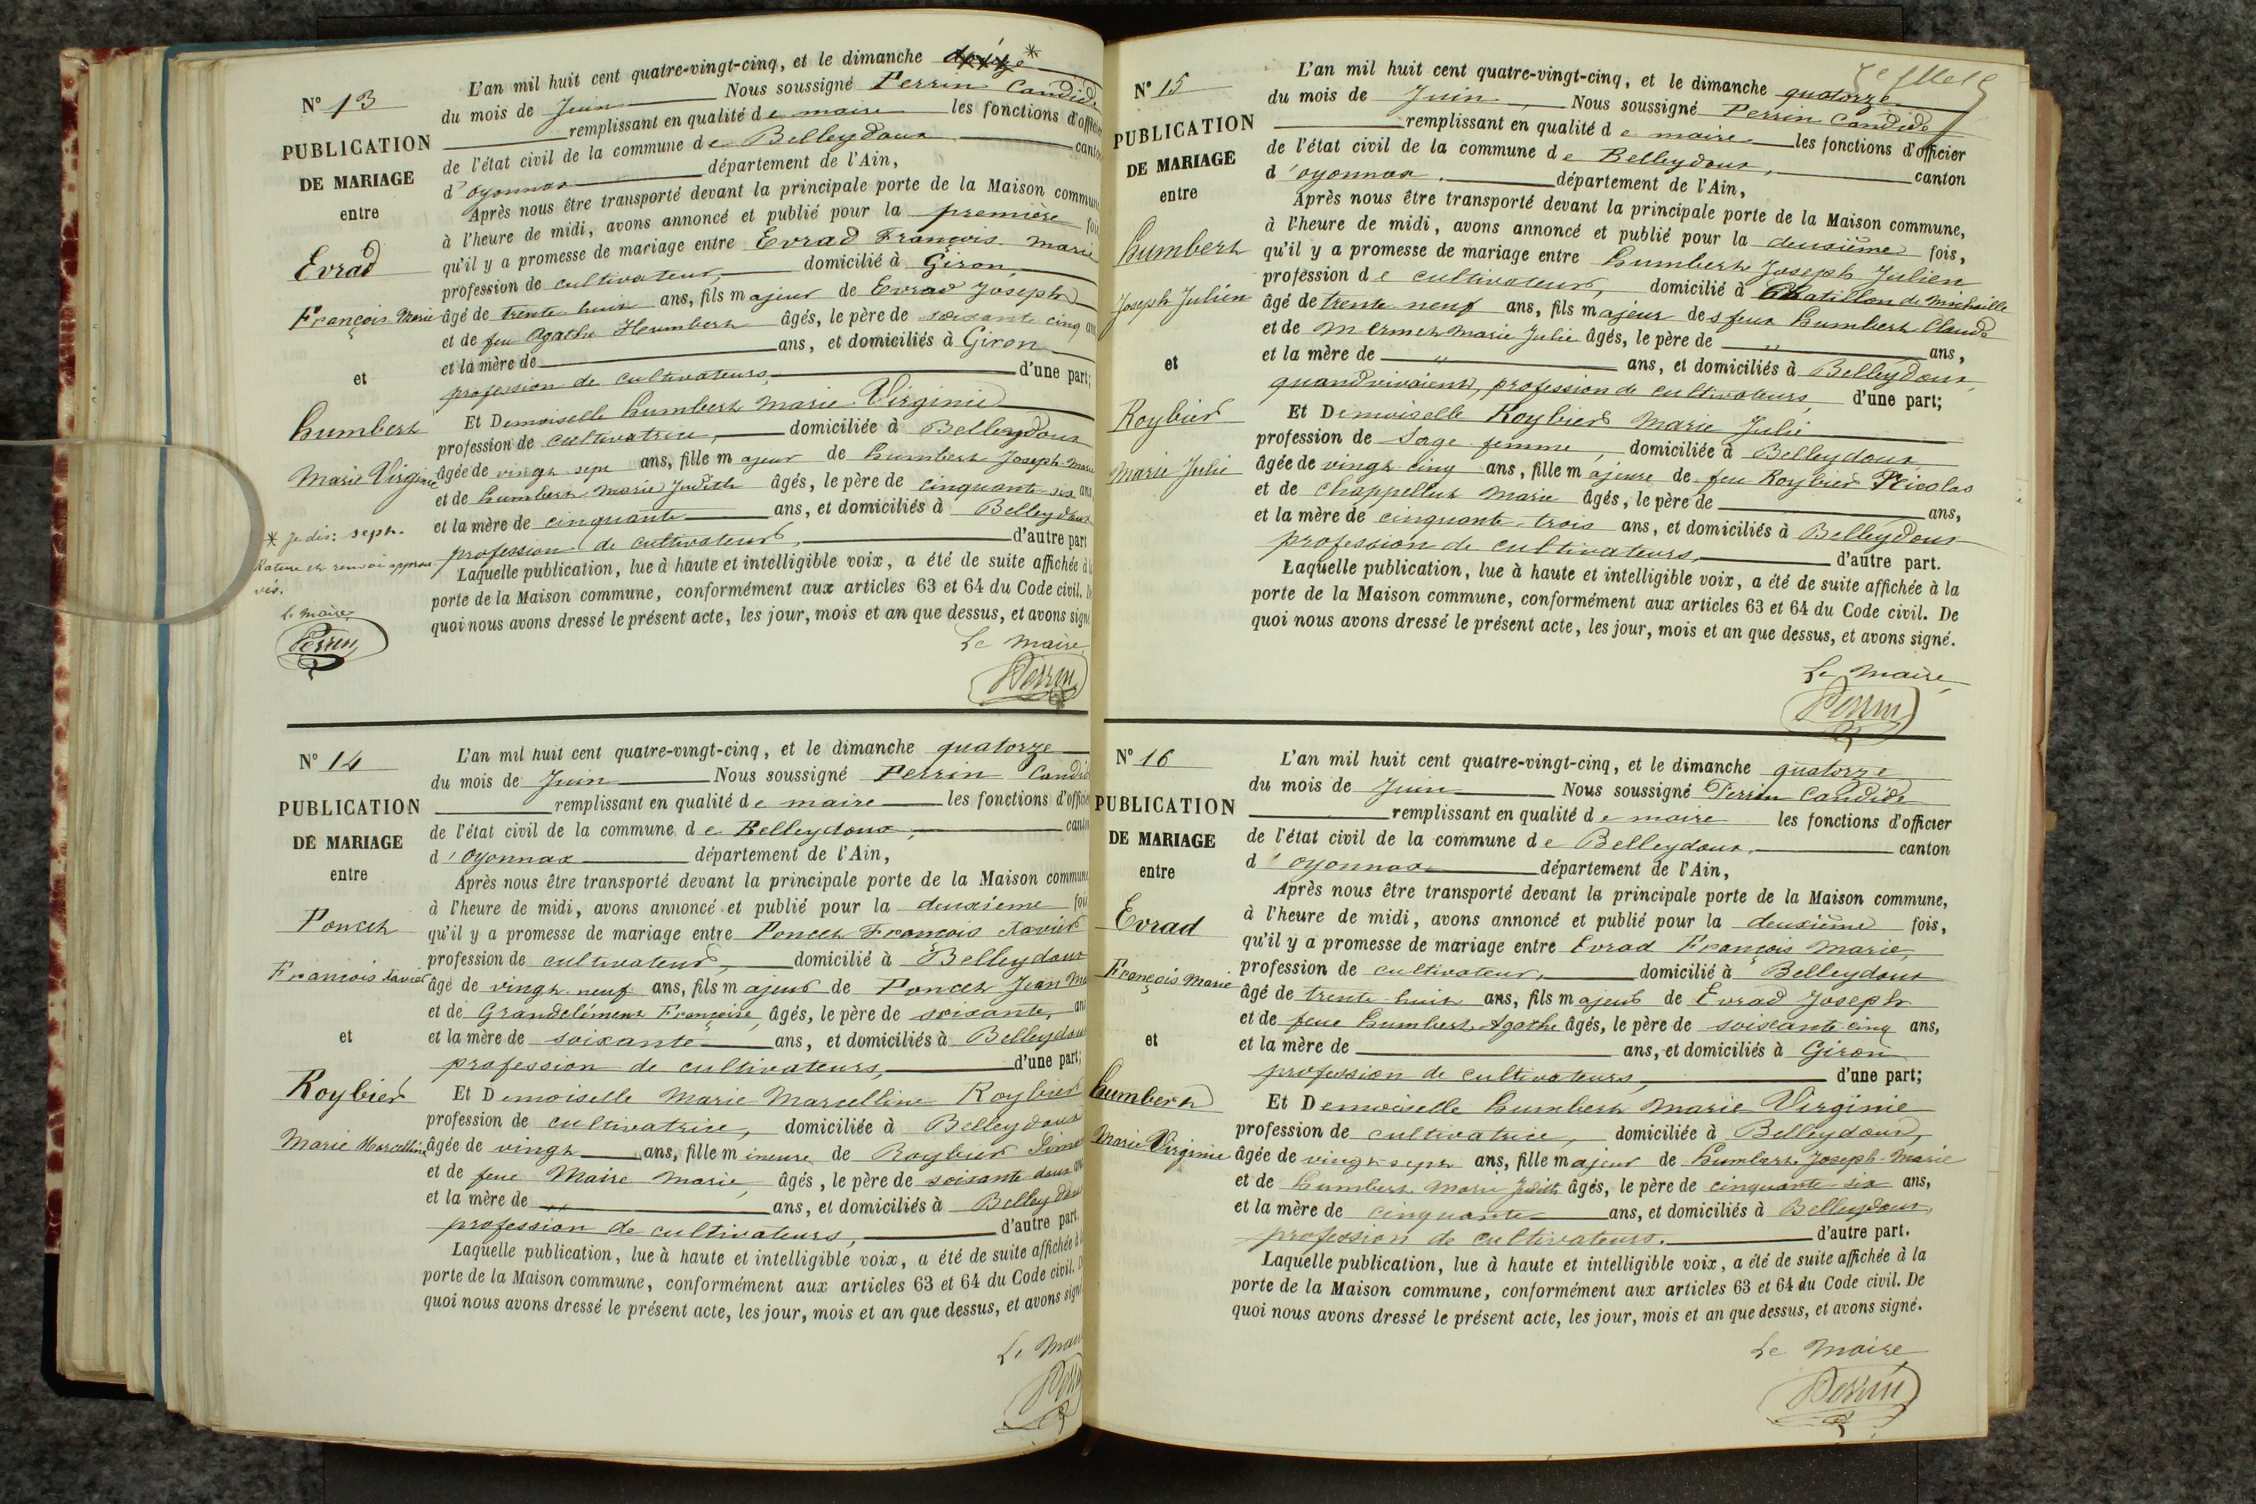 N° 13
PUBLICATION
DE MARIAGE
entre
Evrad
François Marie
et
humbert
Marie Virginie
* Je dis: sept.
Rature et renvoi approu-
vés.
Le maire
Perrin
L'an mil huit cent quatre-vingt-cinq, et le dimanche *
du mois de Juin Nous soussigné Perrin Candide
remplissant en qualité de maire les fonctions d'officier
de l'état civil de la commune de Belleydoux canton
d'oyonnax département de l'Ain,
Après nous être transporté devant la principale porte de la Maison commune
à l'heure de midi, avons annoncé et publié pour la première fois
qu'il y a promesse de mariage entre Evrad François Marie
profession de cultivateur, domicilié à Giron,
âgé de trente huit ans, fils majeur de Evrad Joseph
et de feu Agathe Heumbert âgés, le père de soixante cinq ans
et la mère de ans, et domiciliés à Giron
profession de cultivateurs, d'une part;
Et Demoiselle humbert Marie Virginie
profession de cultivatrice, domiciliée à Belleydoux
âgée de vingt sept ans, fille majeur de humbert Joseph Marie
et de humbert Marie Judith âgés, le père de cinquante-six ans,
et la mère de cinquante ans, et domiciliés à Belleydoux
profession de cultivateurs, d'autre part
Laquelle publication, lue à haute et intelligible voix, a été de suite affichée à la
porte de la Maison commune, conformément aux articles 63 et 64 du Code civil. De
quoi nous avons dressé le présent acte, les jour, mois et an que dessus, et avons signé
Le Maire,
Perrin
N° 14
PUBLICATION
DE MARIAGE
entre
Poncet
François Xavier
et
Roybier
Marie Marcelline
L'an mil huit cent quatre-vingt-cinq, et le dimanche quatorze
du mois de Juin Nous soussigné Perrin Candide
remplissant en qualité de maire les fonctions d'officier
de l'état civil de la commune de Belleydoux, canton
d'Oyonnax département de l'Ain,
Après nous être transporté devant la principale porte de la Maison commune
à l'heure de midi, avons annoncé et publié pour la deuxième fois
qu'il y a promesse de mariage entre Poncet François Xavier
profession de cultivateur, domicilié à Belleydoux
âgé de vingt-neuf ans, fils majeur de Poncet Jean Ma
et de Grandclément Françoise, âgés, le père de soixante, ans
et la mère de soixante ans, et domiciliés à Belleydoux
profession de cultivateurs, d'une part;
Et Demoiselle Marie Marcelline Roybier
profession de cultivatrice, domiciliée à Belleydoux
âgée de vingt ans, fille mineure de Roybier
et de feue Maire Marie, âgés, le père de soixante deux ans
et la mère de ans, et domiciliés à Belleydoux
profession de cultivateurs, d'autre part.
Laquelle publication, lue à haute et intelligible voix, a été de suite affichée à la
porte de la Maison commune, conformément aux articles 63 et 64 du Code civil. D
quoi nous avons dressé le présent acte, les jour, mois et an que dessus, et avons signé
Le Maire
Perrin
N° 15
PUBLICATION
DE MARIAGE
entre
humbert
Joseph Julien
et
Roybier
Marie Julie
L'an mil huit cent quatre-vingt-cinq, et le dimanche quatorze
du mois de Juin, Nous soussigné Perrin Candide
remplissant en qualité de maire les fonctions d'officier
de l'état civil de la commune de Belleydoux, canton
d'oyonnax. département de l'Ain,
Après nous être transporté devant la principale porte de la Maison commune,
à l'heure de midi, avons annoncé et publié pour la deuxième fois,
qu'il y a promesse de mariage entre humbert Joseph Julien
profession de cultivateur, domicilié à Chatillon de Michaille
âgé de trente neuf ans, fils majeur des feux humbert Claude
et de Mermet Marie Julie âgés, le père de " ans,
et la mère de " ans, et domiciliés à Belleydoux,
quand vivaient, profession de cultivateurs, d'une part;
Et Demoiselle Roybier Marie Julie
profession de Sage femme, domiciliée à Belleydoux
âgée de vingt cinq ans, fille majeure de feu Roybier Nicolas
et de Chappelluz Marie âgés, le père de ans,
et la mère de cinquante-trois ans, et domiciliés à Belleydoux
profession de cultivateurs, d'autre part.
Laquelle publication, lue à haute et intelligible voix, a été de suite affichée à la
porte de la Maison commune, conformément aux articles 63 et 64 du Code civil. De
quoi nous avons dressé le présent acte, les jour, mois et an que dessus, et avons signé.
Le Maire,
Perrin
N° 16
PUBLICATION
DE MARIAGE
entre
Evrad
François Marie
et
humbert
Marie Virginie
L'an mil huit cent quatre-vingt-cinq, et le dimanche quatorze
du mois de Juin Nous soussigné Perrin Candide
remplissant en qualité de maire les fonctions d'officier
de l'état civil de la commune de Belleydoux. canton
d'oyonnax département de l'Ain,
Après nous être transporté devant la principale porte de la Maison commune,
à l'heure de midi, avons annoncé et publié pour la deuxième fois,
qu'il y a promesse de mariage entre Evrad François Marie,
profession de cultivateur, domicilié à Belleydoux
âgé de trente-huit ans, fils majeur de Evrad Joseph
et de feue humbert Agathe âgés, le père de soixante-cinq ans,
et la mère de ans, et domiciliés à Giron
profession de cultivateurs, d'une part;
Et Demoiselle humbert Marie Virginie
profession de cultivatrice, domiciliée à Belleydoux,
âgée de vingt-sept ans, fille majeur de humbert Joseph-Marie
et de humbert Marie Judith âgés, le père de cinquante-six ans,
et la mère de cinquante ans, et domiciliés à Belleydoux,
profession de cultivateurs. d'autre part.
Laquelle publication, lue à haute et intelligible voix, a été de suite affichée à la
porte de la Maison commune, conformément aux articles 63 et 64 du Code civil. De
quoi nous avons dressé le présent acte, les jour, mois et an que dessus, et avons signé.
Le Maire,
Perrin